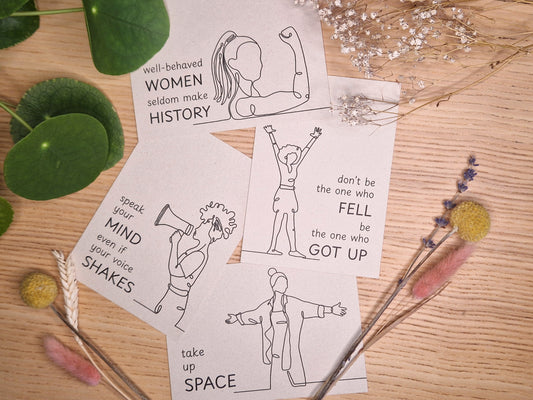 well-behaved
WOMEN
seldom make
HISTORY
don't be
the one who
FELL
be
the one who
GOT UP
speak
your
MIND
even if
your voice
SHAKES
take
up
SPACE